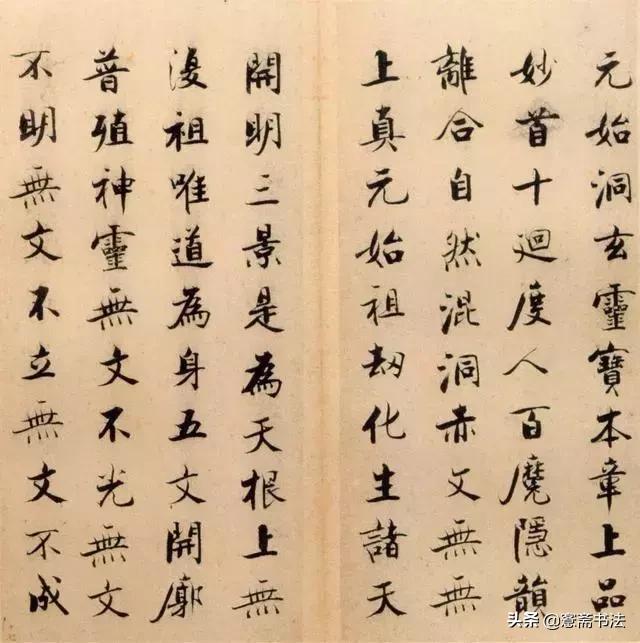 元始洞玄靈寶本章上品
妙首十廻度人百魔隱韻
離合自然混洞赤文無無
上真元始祖劫化生諸天
開明三景是為天根上無
漫祖唯道為身五文開廓
普殖神靈無文不光無文
不明無文不立無文不成
头条@愙斋书法